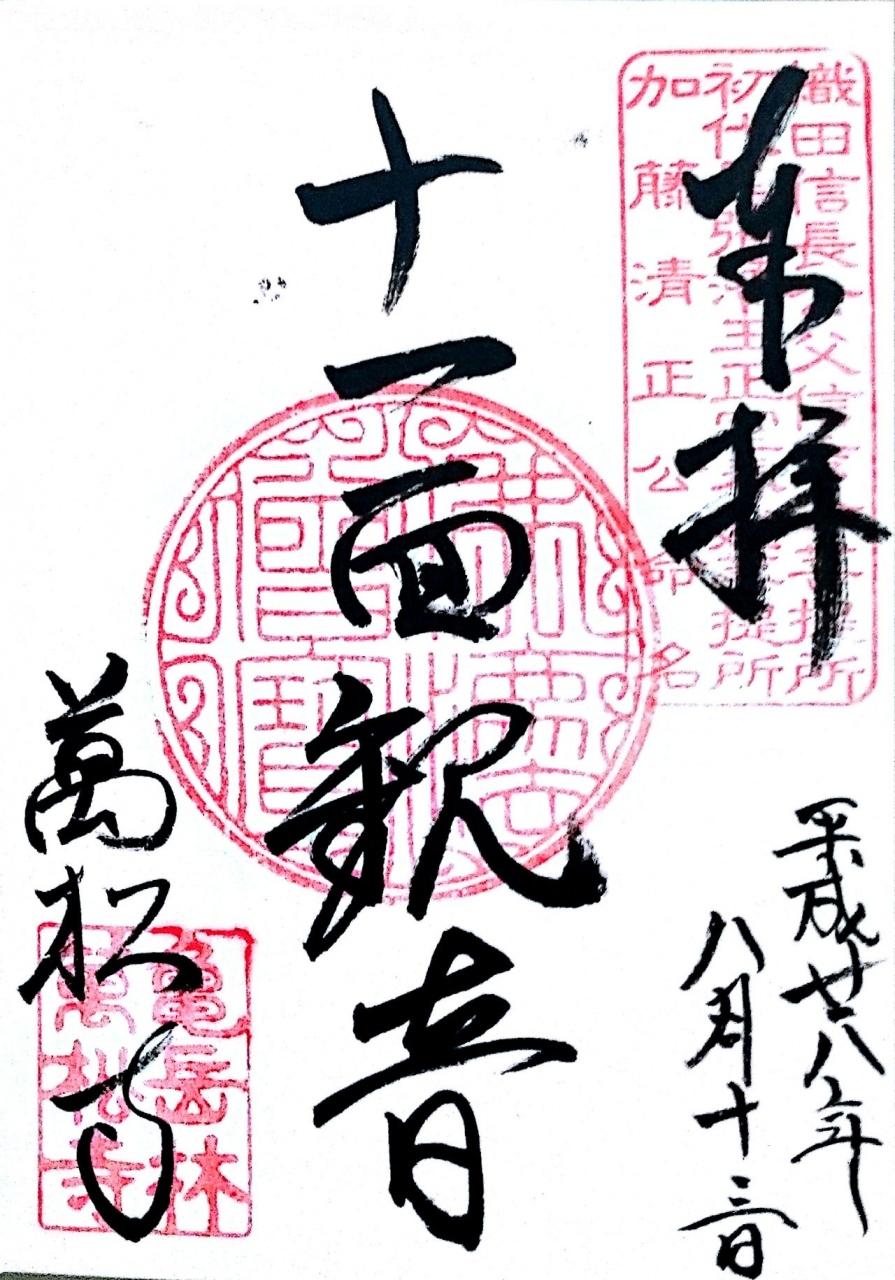 奉拝
織田信長 父信 菩提所
初代 張藩主正 提所
加藤清正公命名
平成廿八年
八月十三日
十一面観音
萬松寺
亀岳林
萬松寺